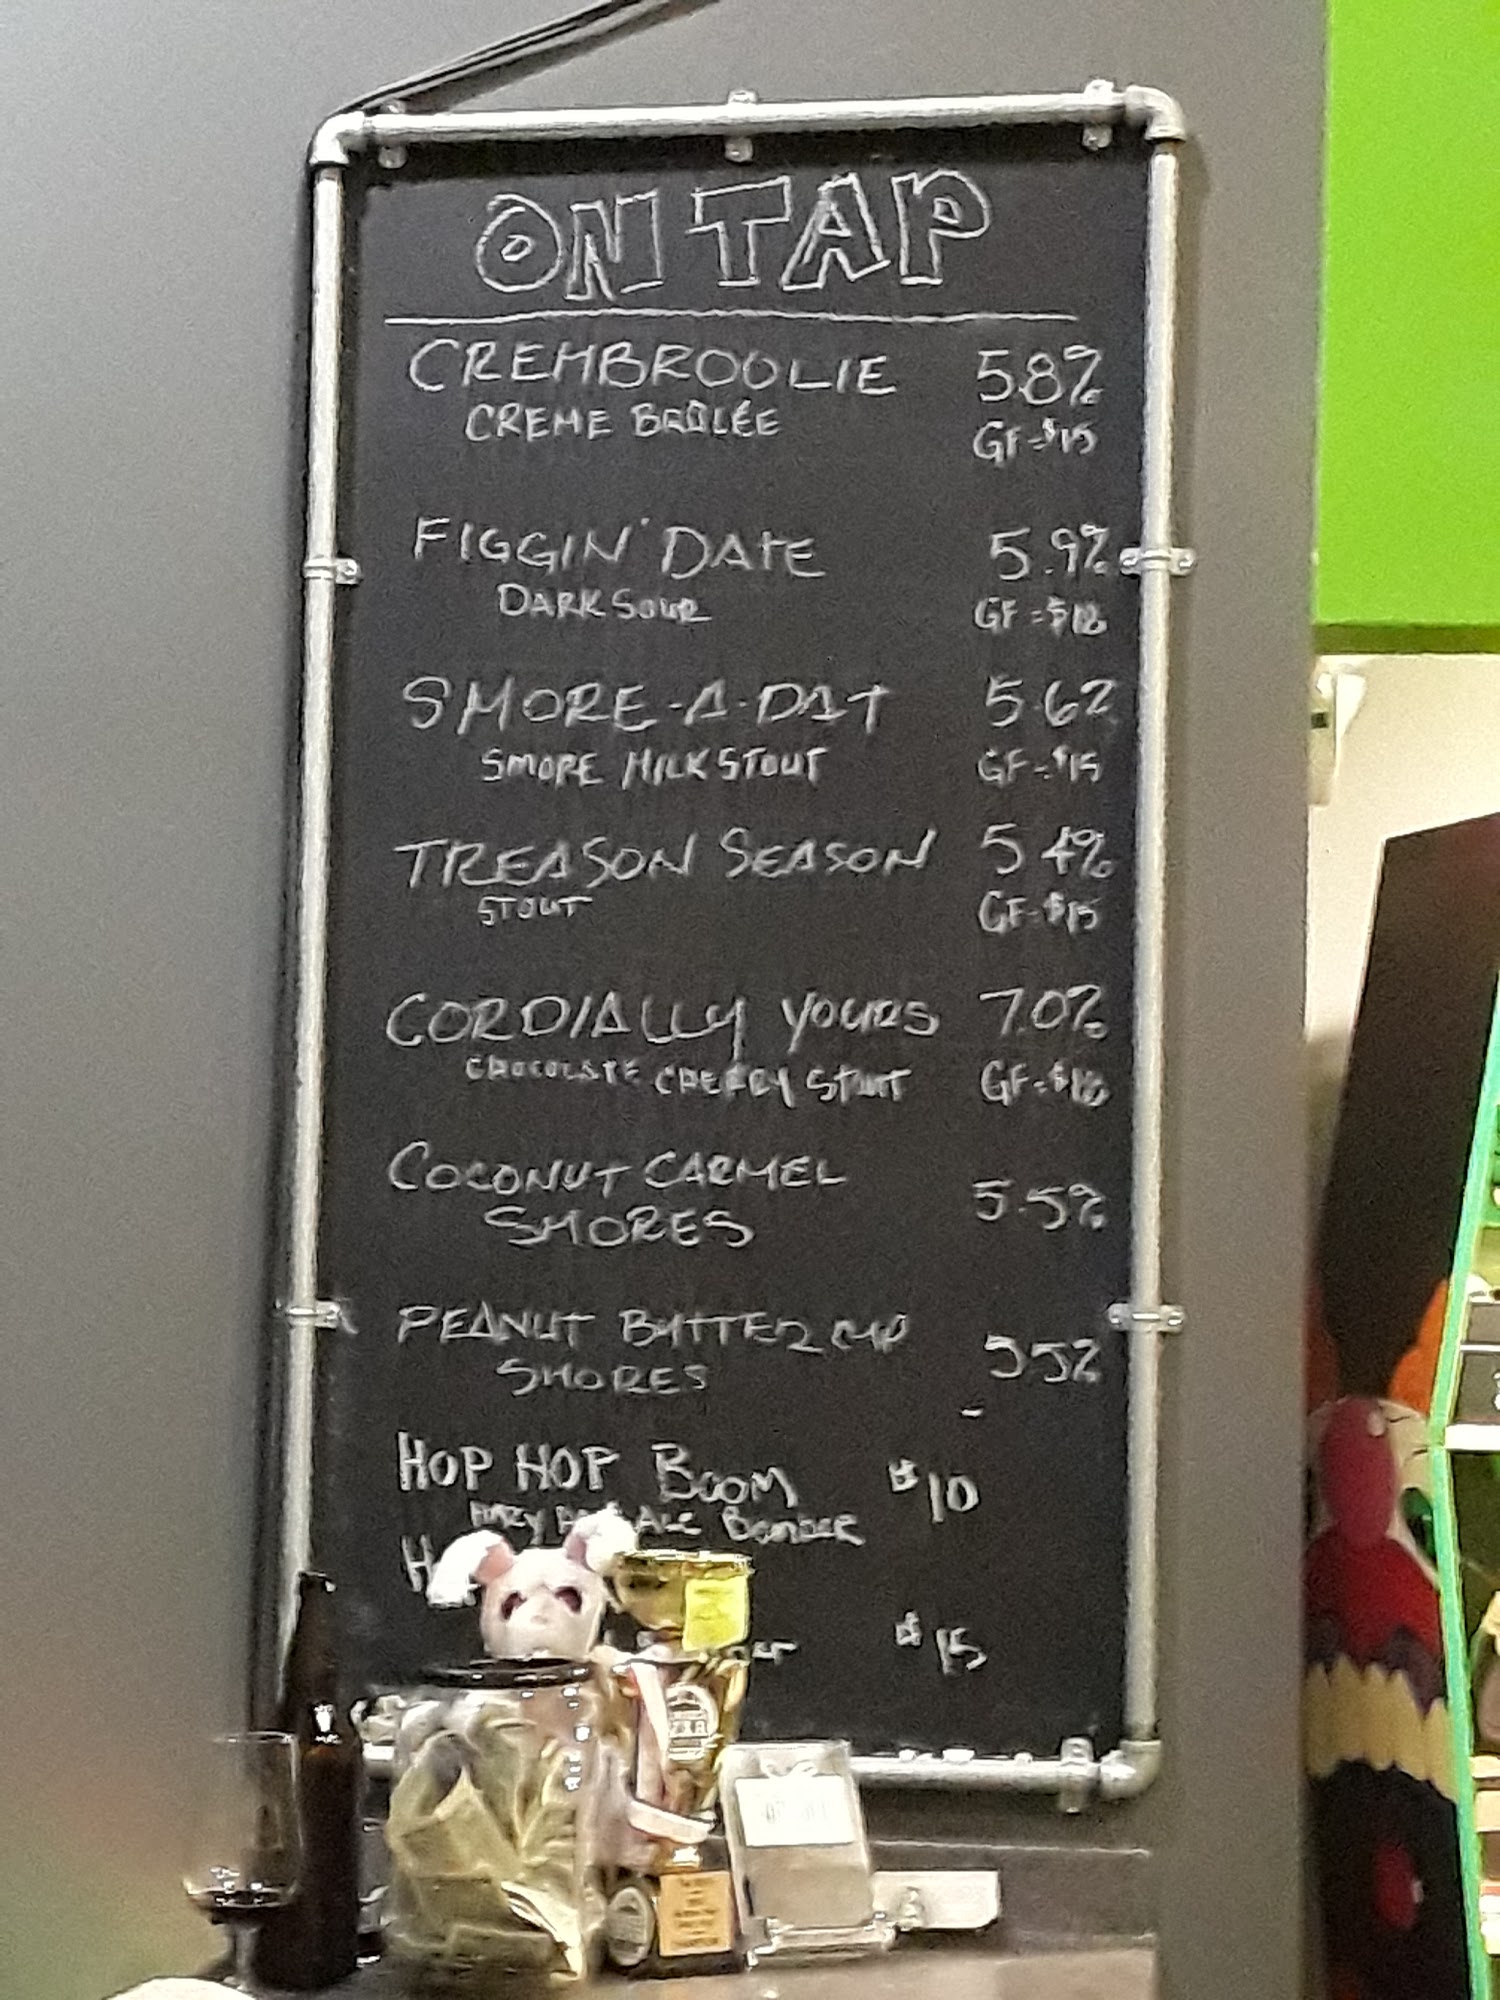 ON TAP
CREMBROOLIE 5.8%
CREME BRÛLÉE GF-$15
FIGGIN' DATE 5.9%
DARK SOUR GF-$18
SMORE-A-DAY 5.6%
SMORE MILK STOUT GF-$15
TREASON SEASON 5.4%
STOUT GF-$15
CORDIALLY YOURS 7.0%
CHOCOLATE CHERRY STOUT GF-$18
COCONUT CARMEL 5.5%
SMORES
PEANUT BUTTER CUP 5.5%
SMORES
HOP HOP BOOM $10
HAZY ALE BOMBER
$15